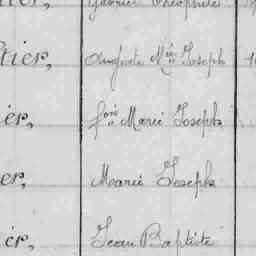 Théophile
tier, Auguste Mie Joseph
ier, fois Marie Joseph
er, Marie Joseph
ier, Jean Baptiste